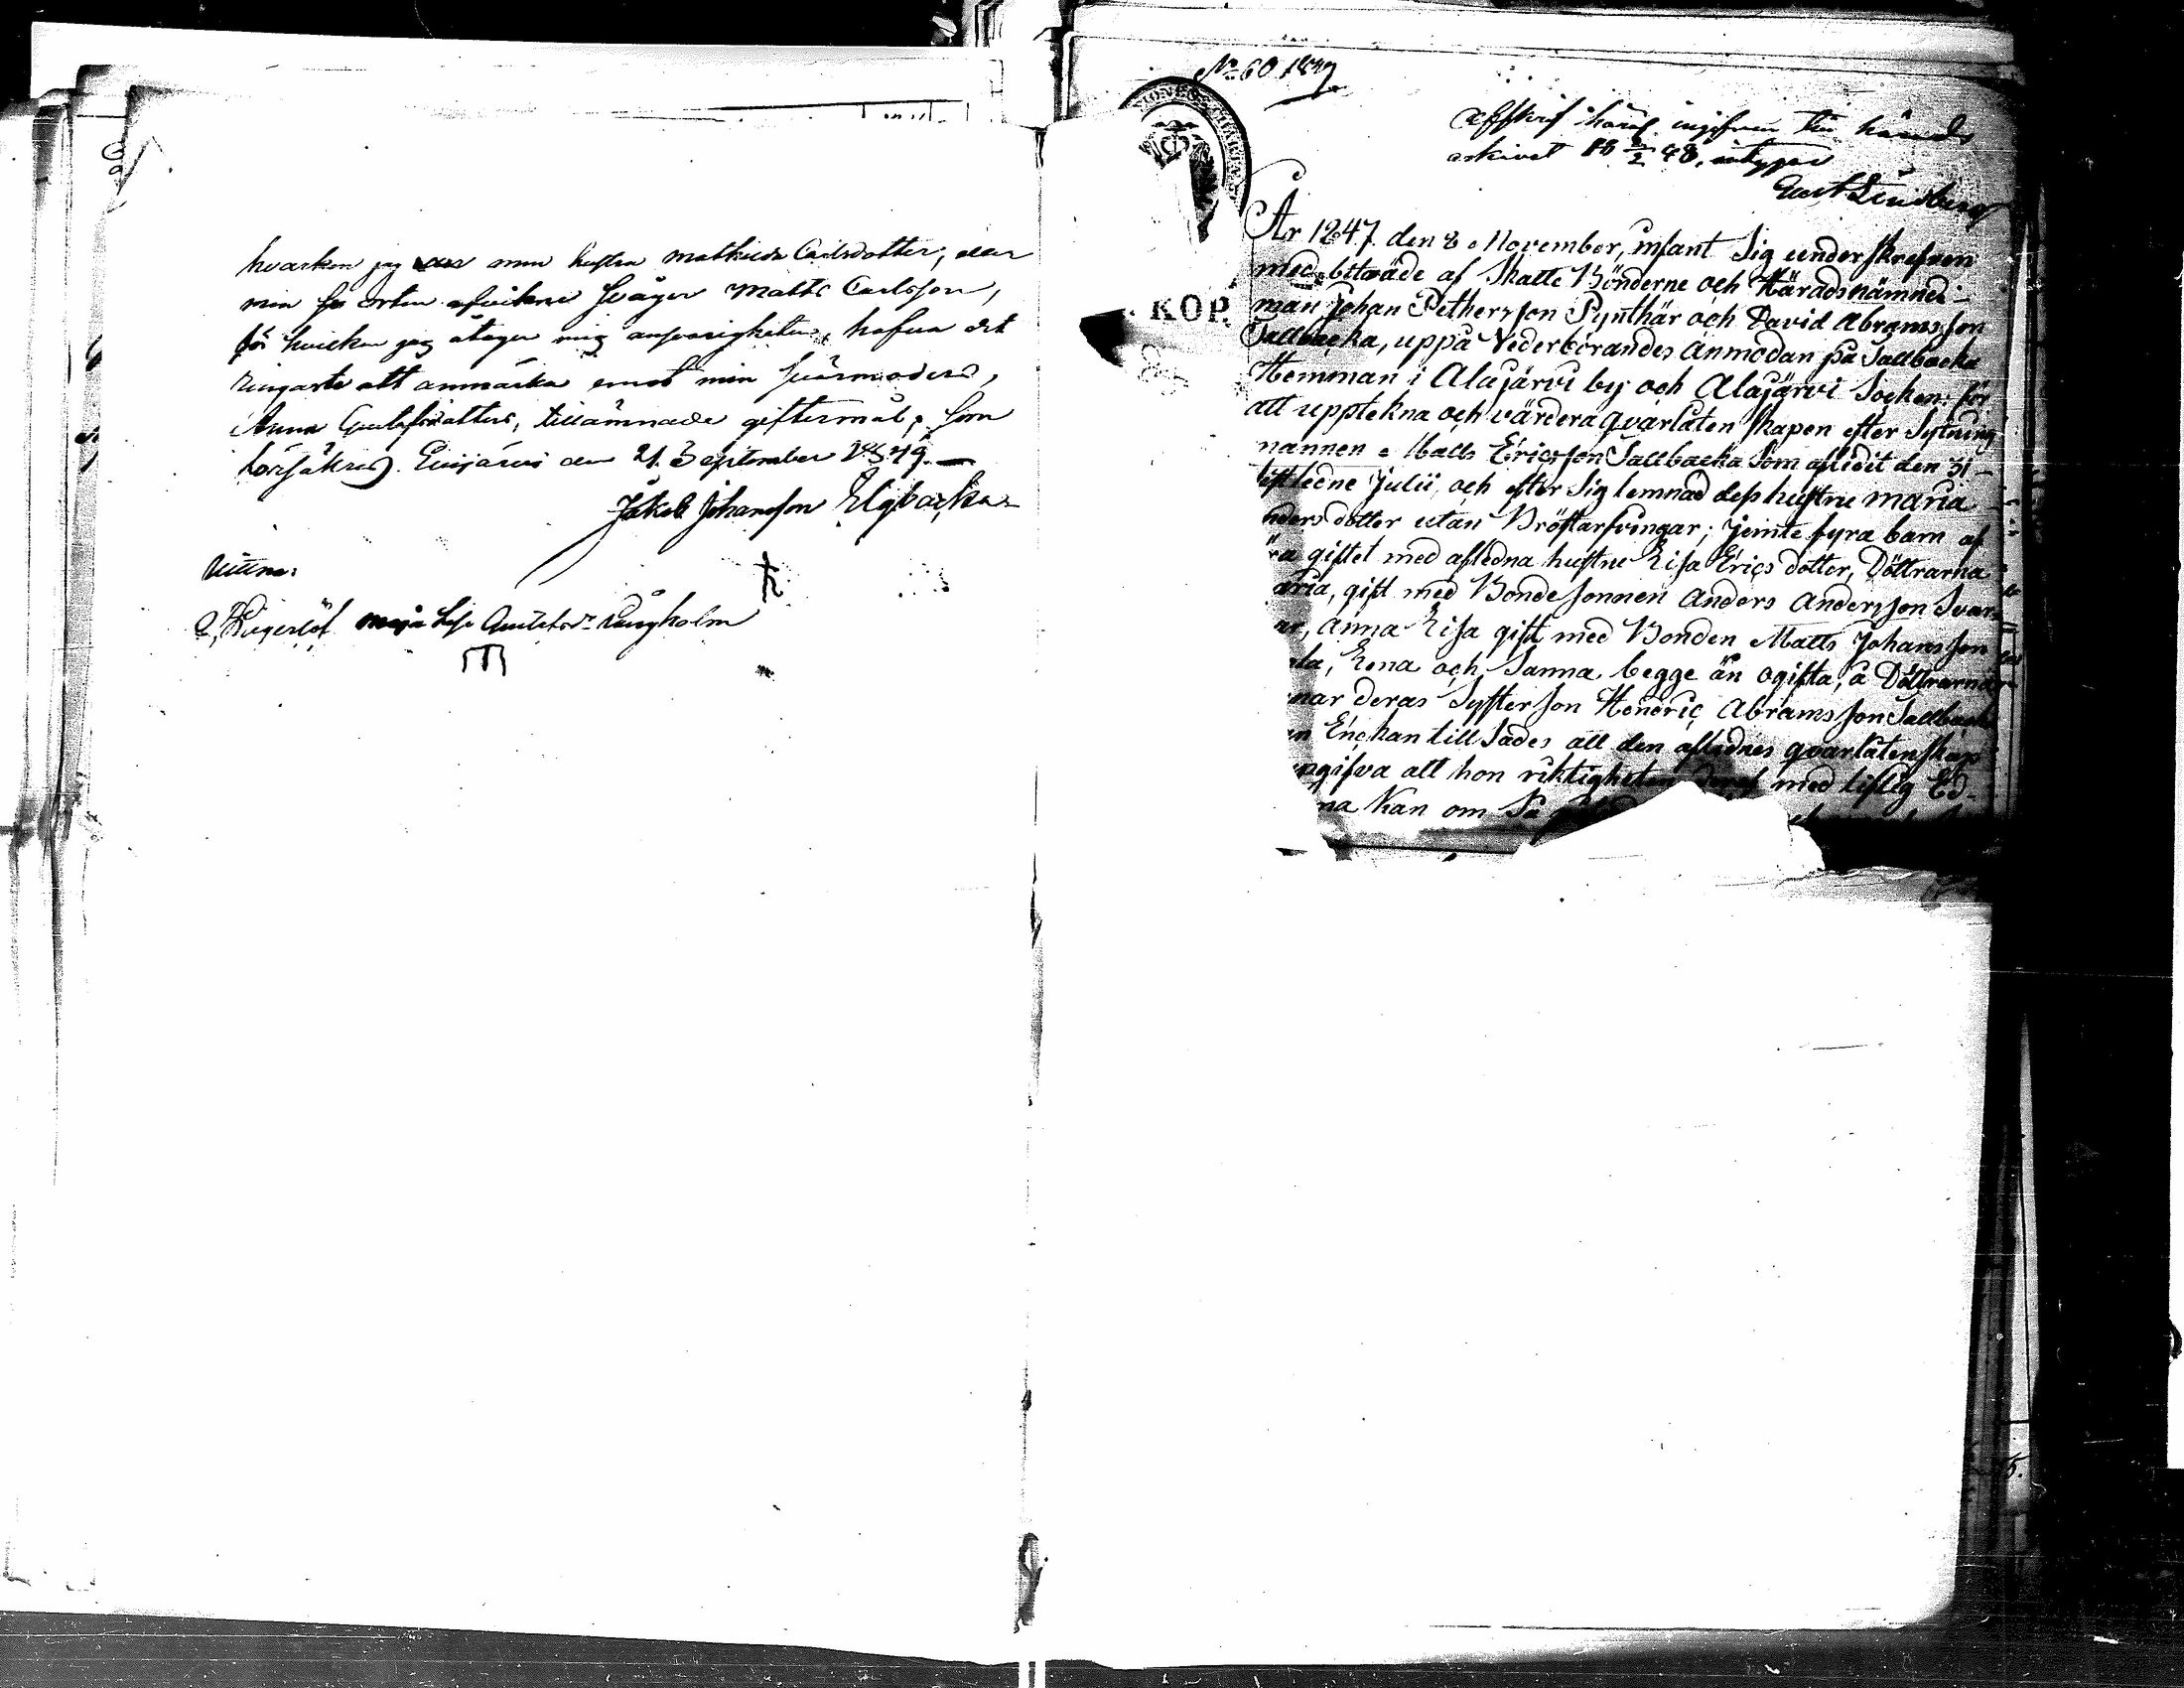 hvarken jag eller min hustru Mathilda Carlsdotter, eller
min från orten afvikne Svåger Matts Carlsson,
för hvilken jag åtager mig ansvarigheten, hafva det
ringaste att anmärka emot min Svärmoders,
Anna Gustafsdotters, tillämnade giftermål, som
försäkras. Evijärvi den 21 September 1849.
Jakob Johansson Elgbacka
Vittna:
Maja Lisa Gustafsdr Långholm
No 60 1847
Afskrift häraf ingifven till härads
arkivet 18 2/2 48, intygar
Gust Lindberg
KOP.
År 1847 den 8 November, infant Sig underskrefven
med biträde af Skatte Bönderne och Häradsnämnde-
man Johan Pethersson Pynthär och David Abramsson
Sallbacka, uppå Vederbörandes anmodan på Sallbacka
Hemman i Alajärvi by och Alajärvi Socken, för
att upptekna och värdera qvarlåtenskapen efter Sytning
mannen Matts Ericsson Sallbacka Som aflidit den 31
sistledne Julii, och efter Sig lemnad dess hustru Maria
nders dotter utan Bröstarfvingar; jemte fyra barn af
ra giftet med afledna hustru Lisa Erics dotter, Döttrarna
aria, gift med Bondesonnen Anders Andersson Svar
ar, Anna Lisa gift med Bonden Matts Johansson
ala, Lena och Sanna begge än ogifta, å Döttrarnas
nar deras Systerson Henric Abramsson Sallbacka
n Enckan till Sades all den aflednes qvarlåtenskap
pgifva att hon riktigheten deraf med liflig Ed-
na Kan om Så